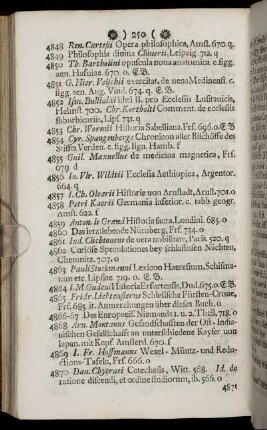 ( 250 )
4848 Ren. Cartesii Opera philosophica, Amst. 670. q.
4849 Philosophia divina Chineris, Leipzig. 712. q
4850 Th. Bartholini opuscula nova anatomica. c. figg.
aen. Hafniae. 670. o. E.B.
4851 G. Hier. Velschii exercitat. de uena Medinensi. c.
figg. aen. Aug. Vind. 674. q. E.B.
4852 Ism. Bullialdi libri II. pro Ecclesiis Lusitanicis,
Helmst. 700. Chr. Kortholti Comment. de ecclesiis
suburbicariis, Lips. 731. q
4853 Chr. Wormii Historia Sabelliana. Frf. 696. o E B
4854 Cyr. Spangenbergs Chronicon aller Bischöffe des
Stiffts Verden. c. figg. lign. Hamb. f
4855 Guil. Maxuellus de medicina magnetica, Frf.
679. d
4856 Io. Vlr. Wildtii Ecclesia Aethiopica, Argentor.
664. q
4857 I. Ch. Olearii Historie von Arnstadt, Arnst. 701. o
4858 Petri Kaerii Germania inferior. c. tabb. geogr.
Amst. 622. f
4859 Anton. le Grand Historia sacra. Londini. 685. o
4860 Das ietzlebende Nürnberg, Frf. 734. o
4861 Iud. Clichtoueus de uera nobilitate, Paris. 520. q
4862 Curiöse Speculationes bey schlaflosen Nächten,
Chemnitz. 707. o
4863 Pauli Stockmanni Lexicon Haeresium, Schisma-
tum etc Lipsiae. 719. o. E. B.
4864 I. M. Gudeni Historia Erfurtensis, Dud. 675. o E.B
4865 Fridr. Lichtensterns Schlesische Fürsten-Crone,
Frf. 685. it. Anmerckungen über dieses Buch. o
4866-67 Des Europaeisch Niemands 1. u. 2. Theil. 718. o
4868 Arn. Montanus Gesandschafften der Ost-Indi-
nischen Gesellschafft an unterschiedene Kayser von
Iapan. mit Kupf. Amsterd. 670. f
4869 I. Fr. Hoffmanns Wexel-Müntz-und Redu-
ctions-Tafeln, Frf. 666. o
4870 Dau. Chytraei Catechesis, Witt. 568. Id. de
ratione discendi, et ordine studiorum, ib. 566. o
4871